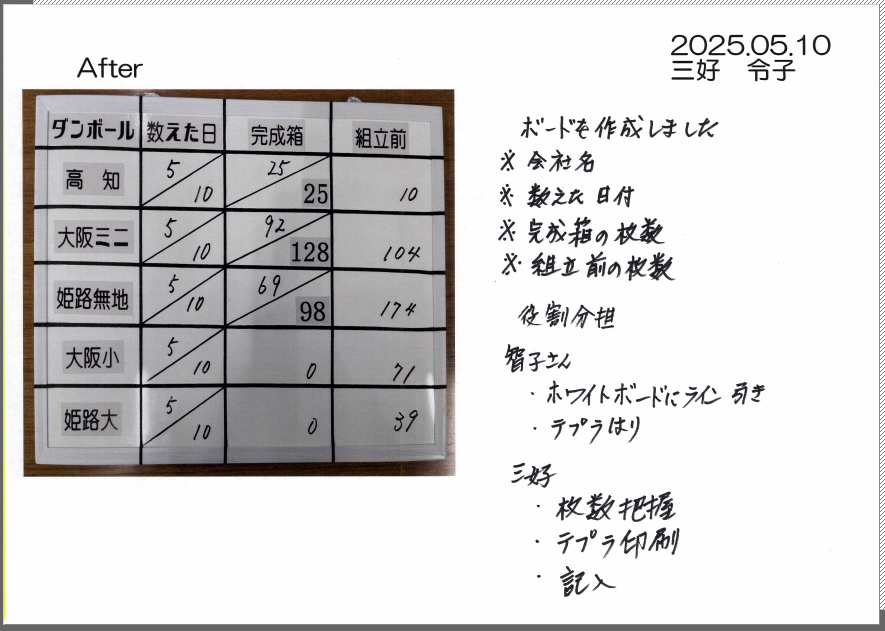 2025.05.10
三好 令子
After
ダンボール 数えた日 完成箱 組立前
高知 5/10 25/25 10
大阪ミニ 5/10 92/128 104
姫路無地 5/10 69/98 174
大阪小 5/10 0 71
姫路大 5/10 0 39
ボードを作成しました
※会社名
※数えた日付
※完成箱の枚数
※組立前の枚数
役割分担
智子さん
・ホワイトボードにライン引き
・テプラはり
三好
・枚数把握
・テプラ印刷
・記入